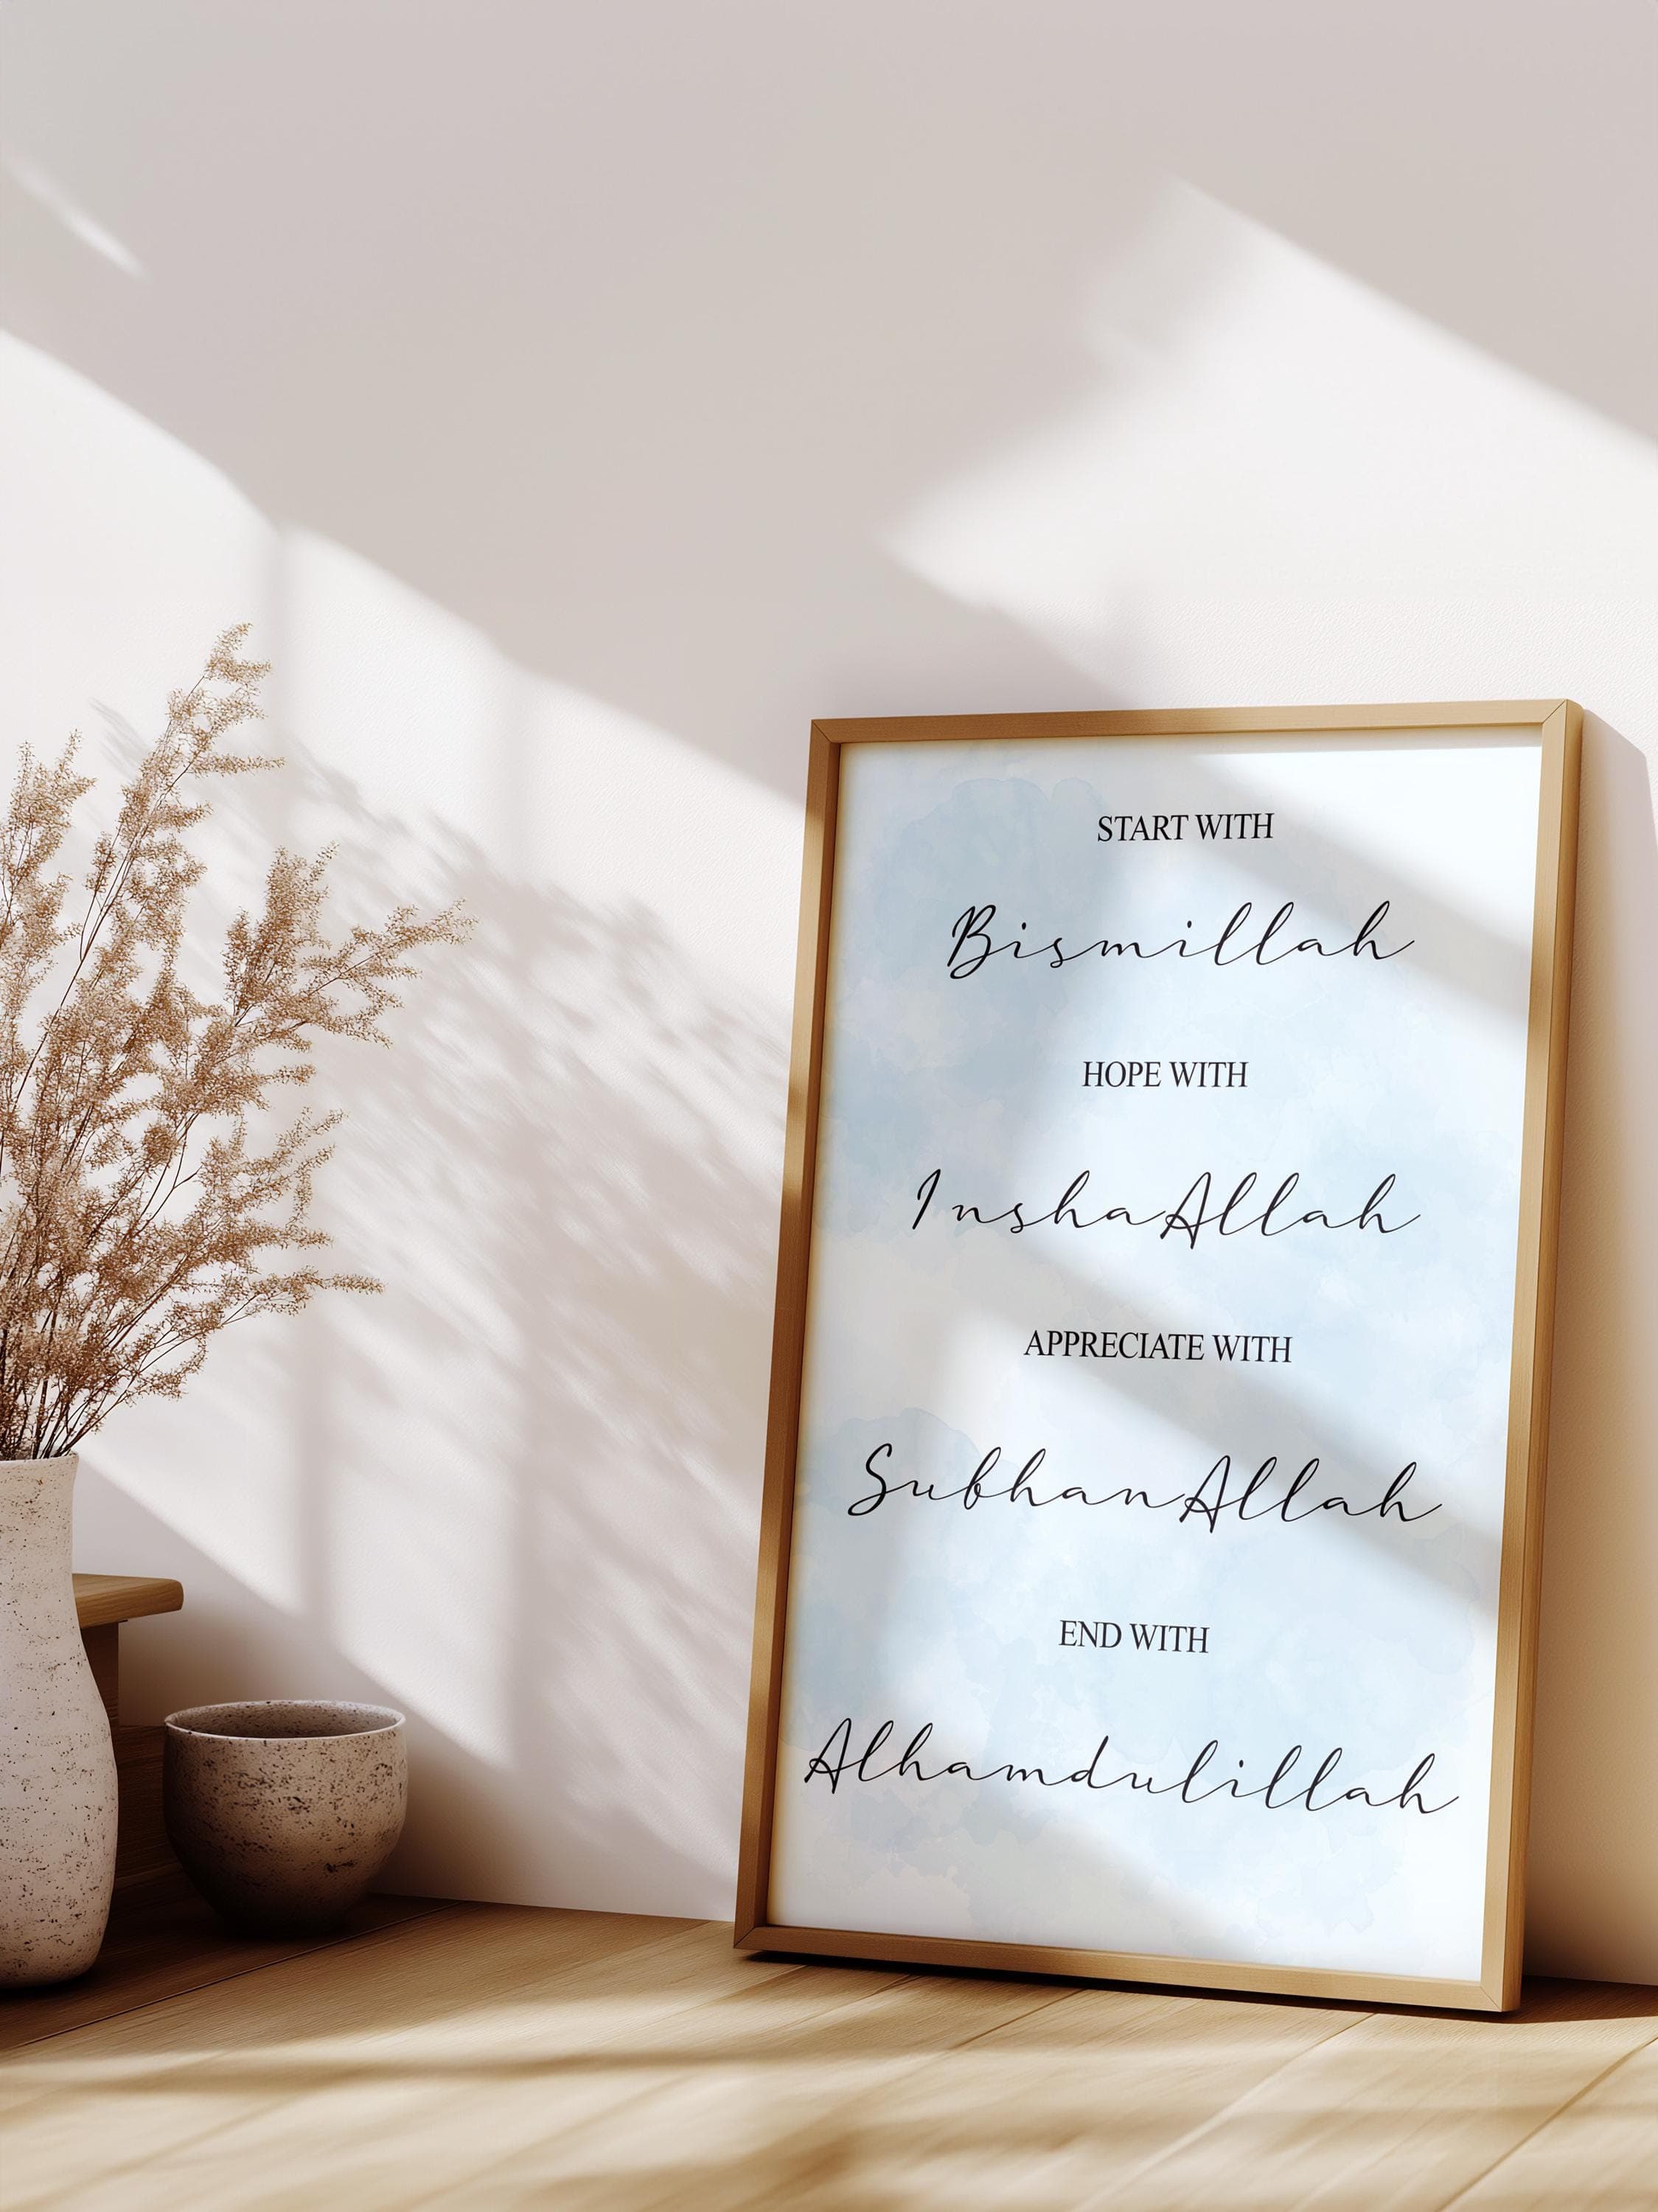 START WITH
Bismillah
HOPE WITH
InshaAllah
APPRECIATE WITH
SubhanAllah
END WITH
Alhamdulillah